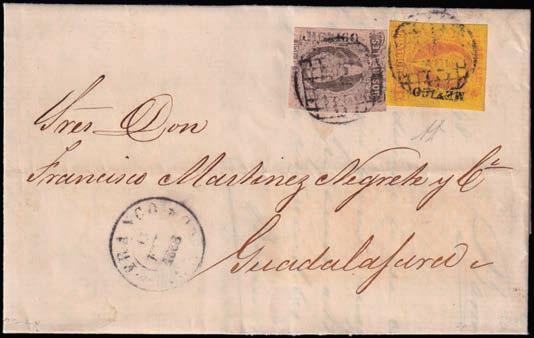 MEXICO
DOS REALES
MEXICO
Sres Don
Francisco Martinez Negrete y Cª
FRANCO
Guadalajara